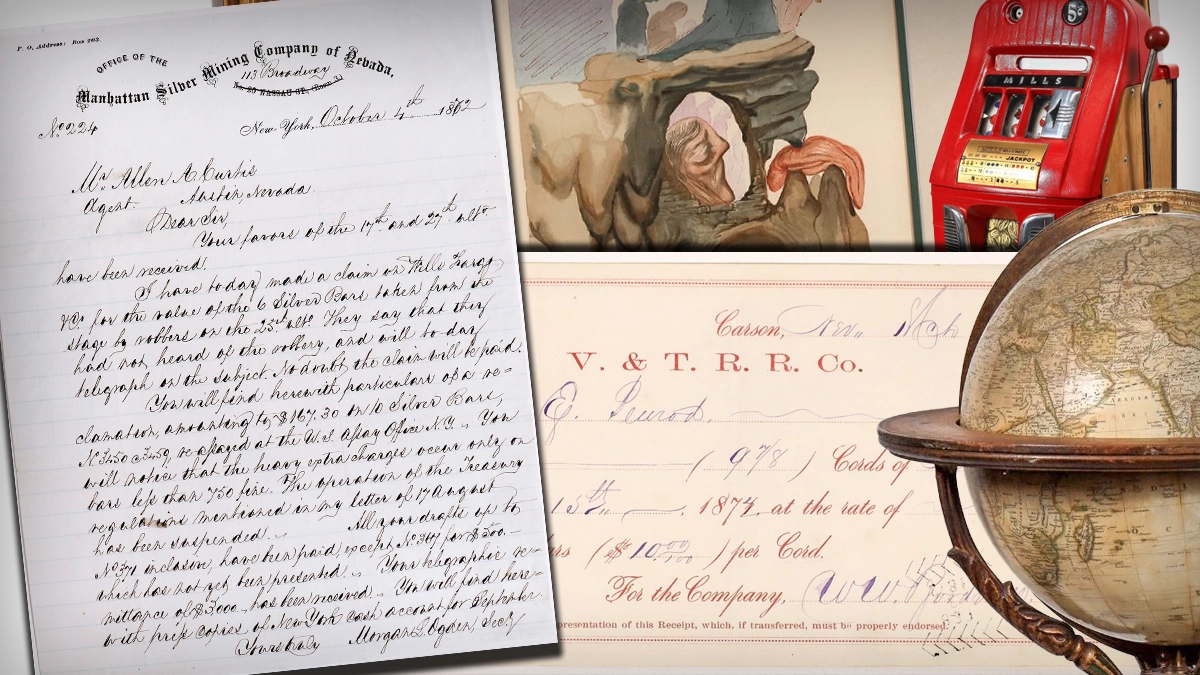 P. O. Address: Box 203.
OFFICE OF THE
Manhattan Silver Mining Company of Nevada,
113 Broadway
No. 80 NASSAU ST., (Room
No 224
New-York, October 4th 18
Mr Allen A. Curtis
Agent. Austin, Nevada.
Dear Sir,
Your favors of the 17th and 27th ulto
have been received.
I have today made a claim on Wells Fargo
& Co. for the value of the 6 Silver Bars taken from the
stage by robbers on the 23rd ulto. They say that they
had not heard of the robbery, and will to day
telegraph on the subject. No doubt the claim will be paid.
You will find herewith particulars of a re=
clamation, amounting to $167.30 on 10 Silver Bars,
No 3450 @ 3459, re assayed at the U.S. Assay Office N.Y. You
will notice that the heavy extra charges occur only on
bars less than 750 fine. The operation of the Treasury
regulations mentioned in my letter of 17 August
has been suspended.
All your drafts up to
No 371 inclusive, have been paid, except No 367 for $500.—
which has not yet been presented. Your telegraphic re=
mittance of $3000 has been received. You will find here=
with press copies of New York cash account for September.
Yours truly Morgan L. Ogden, Secy
MILLS
JACKPOT
5¢
Carson, Nev., Mch
V. & T. R. R. Co.
E. Penrod.
( 978 ) Cords of
15th 1874, at the rate of
rs ($10 00/100 ) per Cord.
For the Company, W.W.
presentation of this Receipt, which, if transferred, must be properly endorsed.